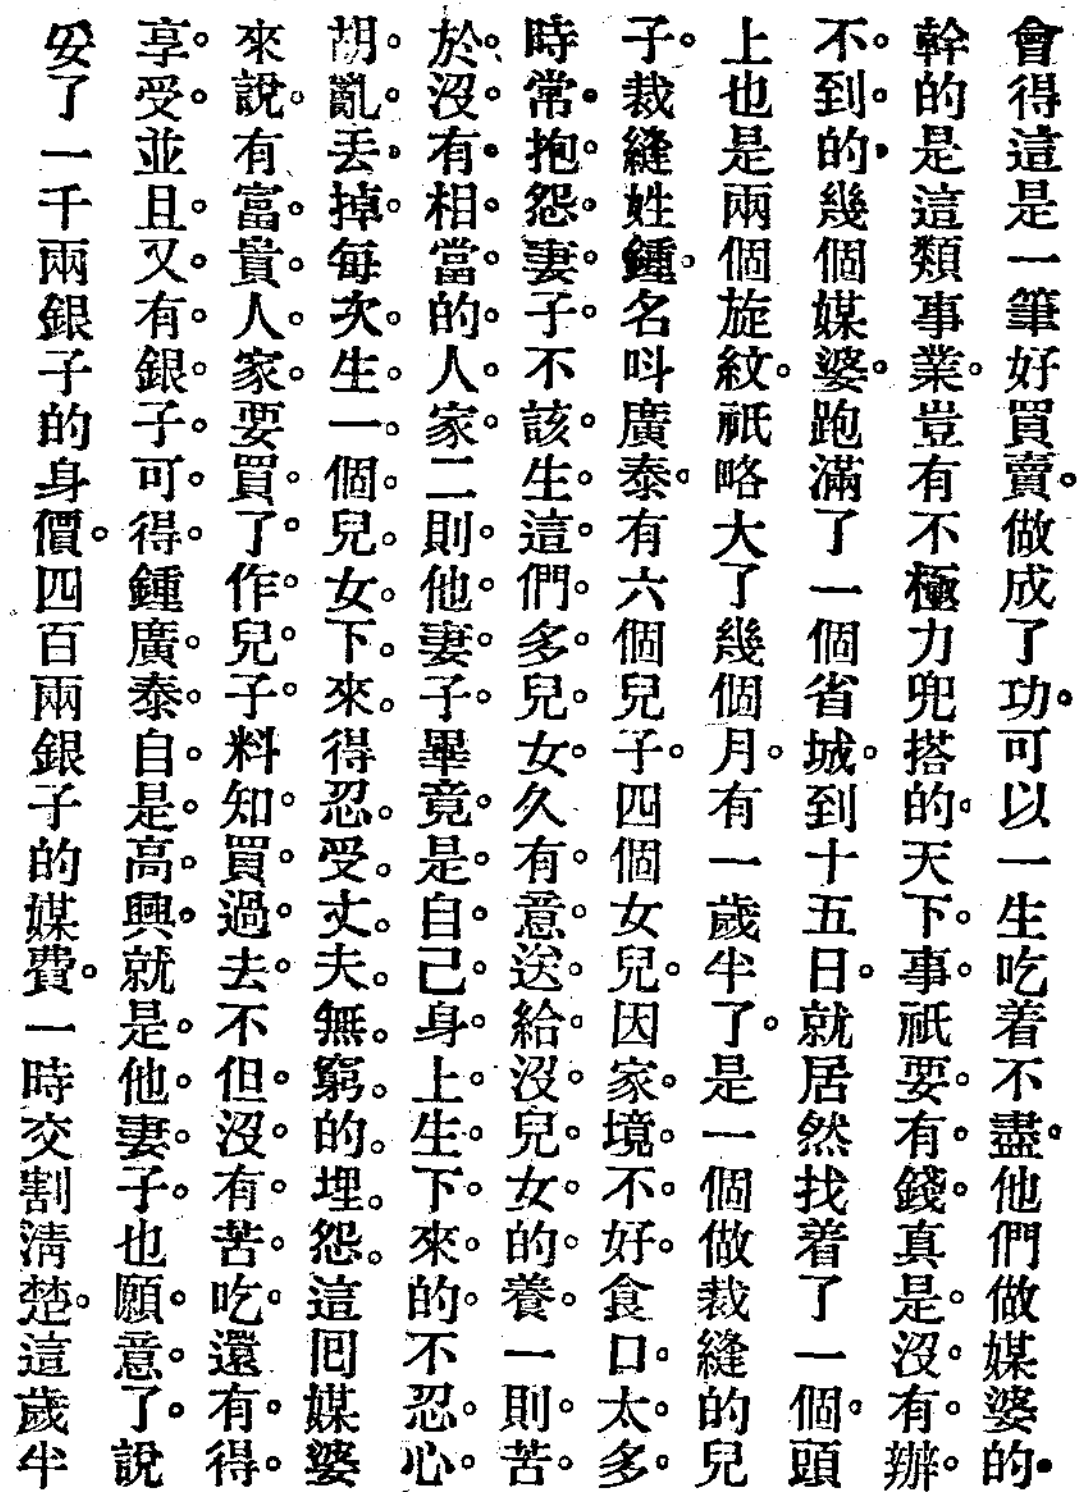 會得這是一筆好買賣。做成了功。可以一生吃着不盡。他們做媒婆的。
幹的是這類事業。豈有不極力兜搭的。天下。事。祇要。有。錢。真是。沒。有。辦。
不。到。的。幾個媒婆。跑滿了一個省城。到十五日。就居然找着了一個。頭
上也是兩個旋紋。祇略大了幾個月。有一歲半了。是一個做裁縫的兒
子。裁縫姓鍾。名呌廣泰。有六個兒子。四個女兒。因家。境。不。好。食口。太。多。
時常。抱。怨。妻。子。不該。生。這。們。多。兒。女。久有。意。送。給。沒。兒。女。的。養。一則。苦。
於。沒。有。相。當。的。人。家。二則。他。妻。子。畢竟。是。自。己。身。上。生。下。來。的。不忍。心。
胡。亂。丟。掉。每次。生。一。個。兒。女。下。來。得忍。受。丈。夫。無。窮。的。埋。怨。這囘媒婆
來說。有富。貴。人。家。要買。了。作。兒。子。料知。買。過。去。不但。沒。有。苦。吃。還有。得。
享。受。並且。又。有。銀。子。可。得。鍾廣。泰。自。是。高。興。就是。他。妻。子。也願。意。了。說
妥了一千兩銀子的身價。四百兩銀子的媒費。一時交割淸楚。這歲半